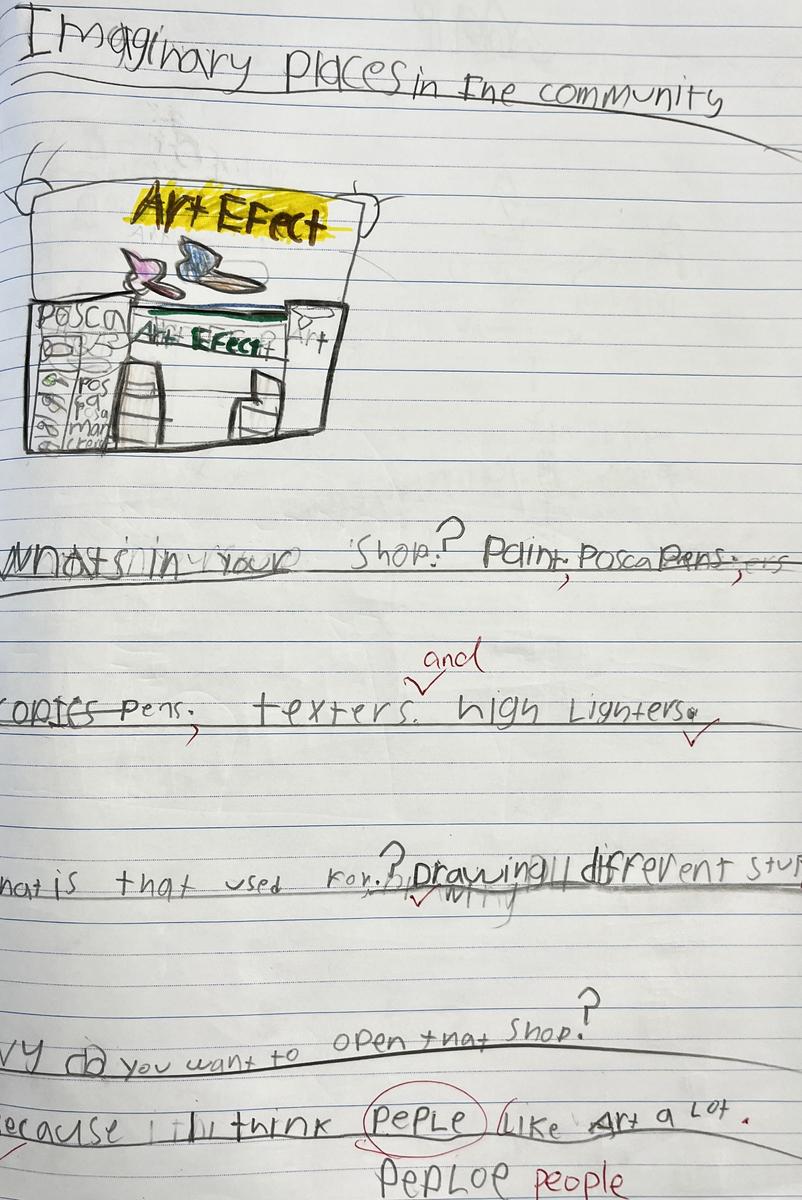 Imaginary places in the community
Art EFect
Posca
Art EFect
Art
Pos
ca
Posa
man
What's in your Shop? Paint, Posca Pens,
and
copies pens, texters. high Lighters.
hat is that used For? Drawing different stuf
vy do you want to open that Shop?
ecause I think PePLe Like Art a Lot.
PePLoe people